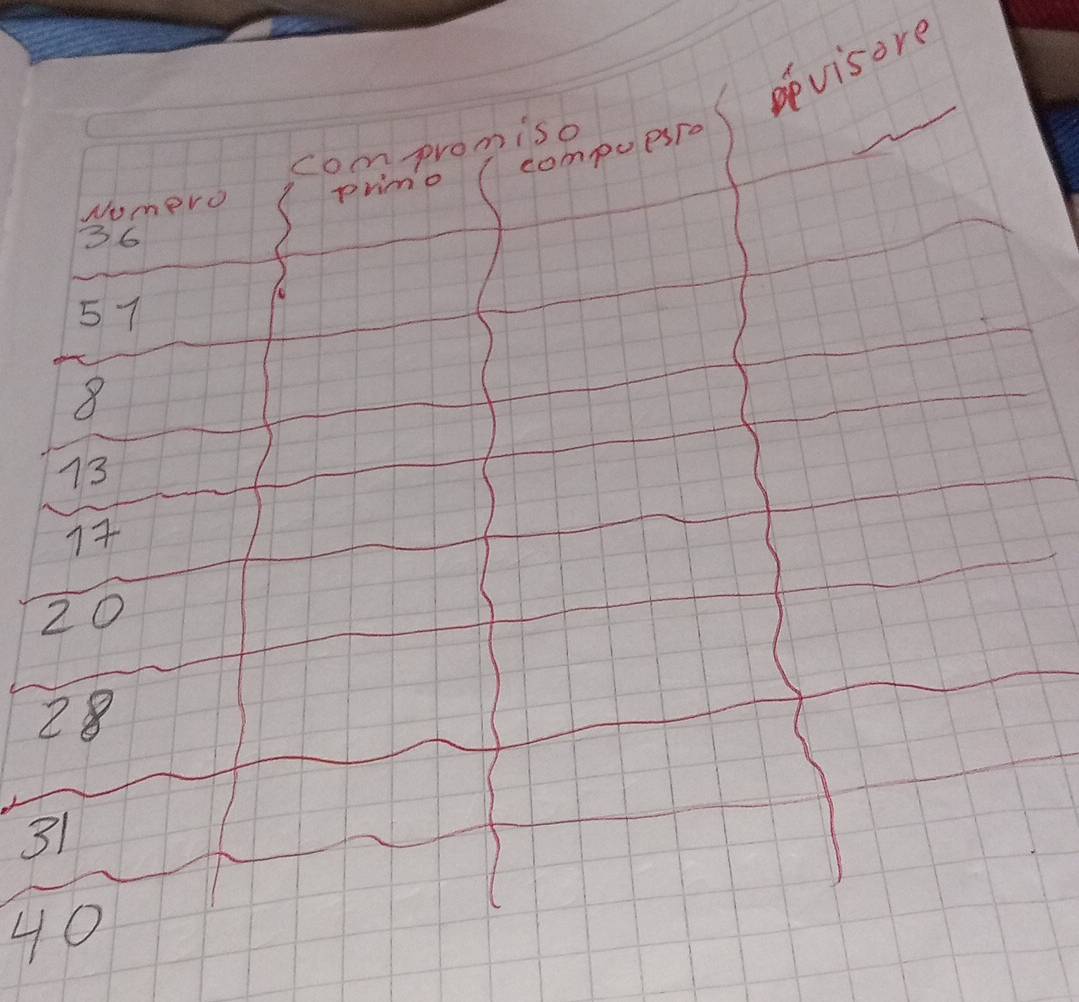 compromiso
Numero primo compuesto devisore
36
51
8
13
17
20
28
31
40